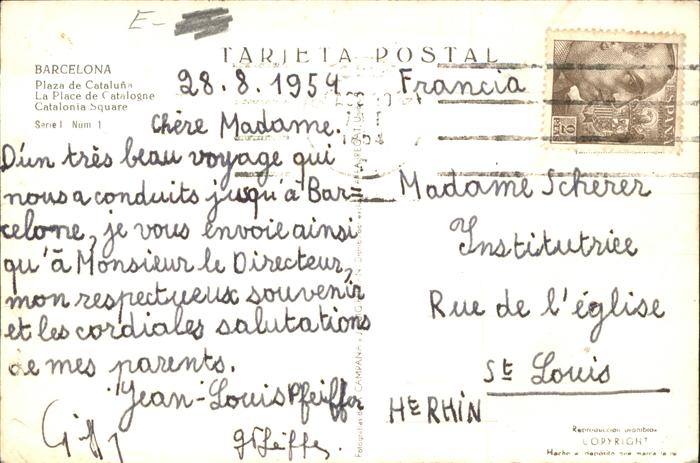 E-
TARJETA POSTAL
BARCELONA
Plaza de Cataluña
La Place de Catalogne
Catalonia Square
Serie I Núm 1
28.8.1954
Francia
Chère Madame.
D'un très beau voyage qui
nous a conduits jusqu'à Bar=
celone, je vous envoie ainsi
qu'à Monsieur le Directeur,
mon respectueux souvenir
et les cordiales salutations
de mes parents.
Jean-Louis Pfeiffer
Madame Scherer
Institutrice
Rue de l'église
St Louis
Ht RHIN
ESPAÑA
Reproducción prohibida
COPYRIGHT